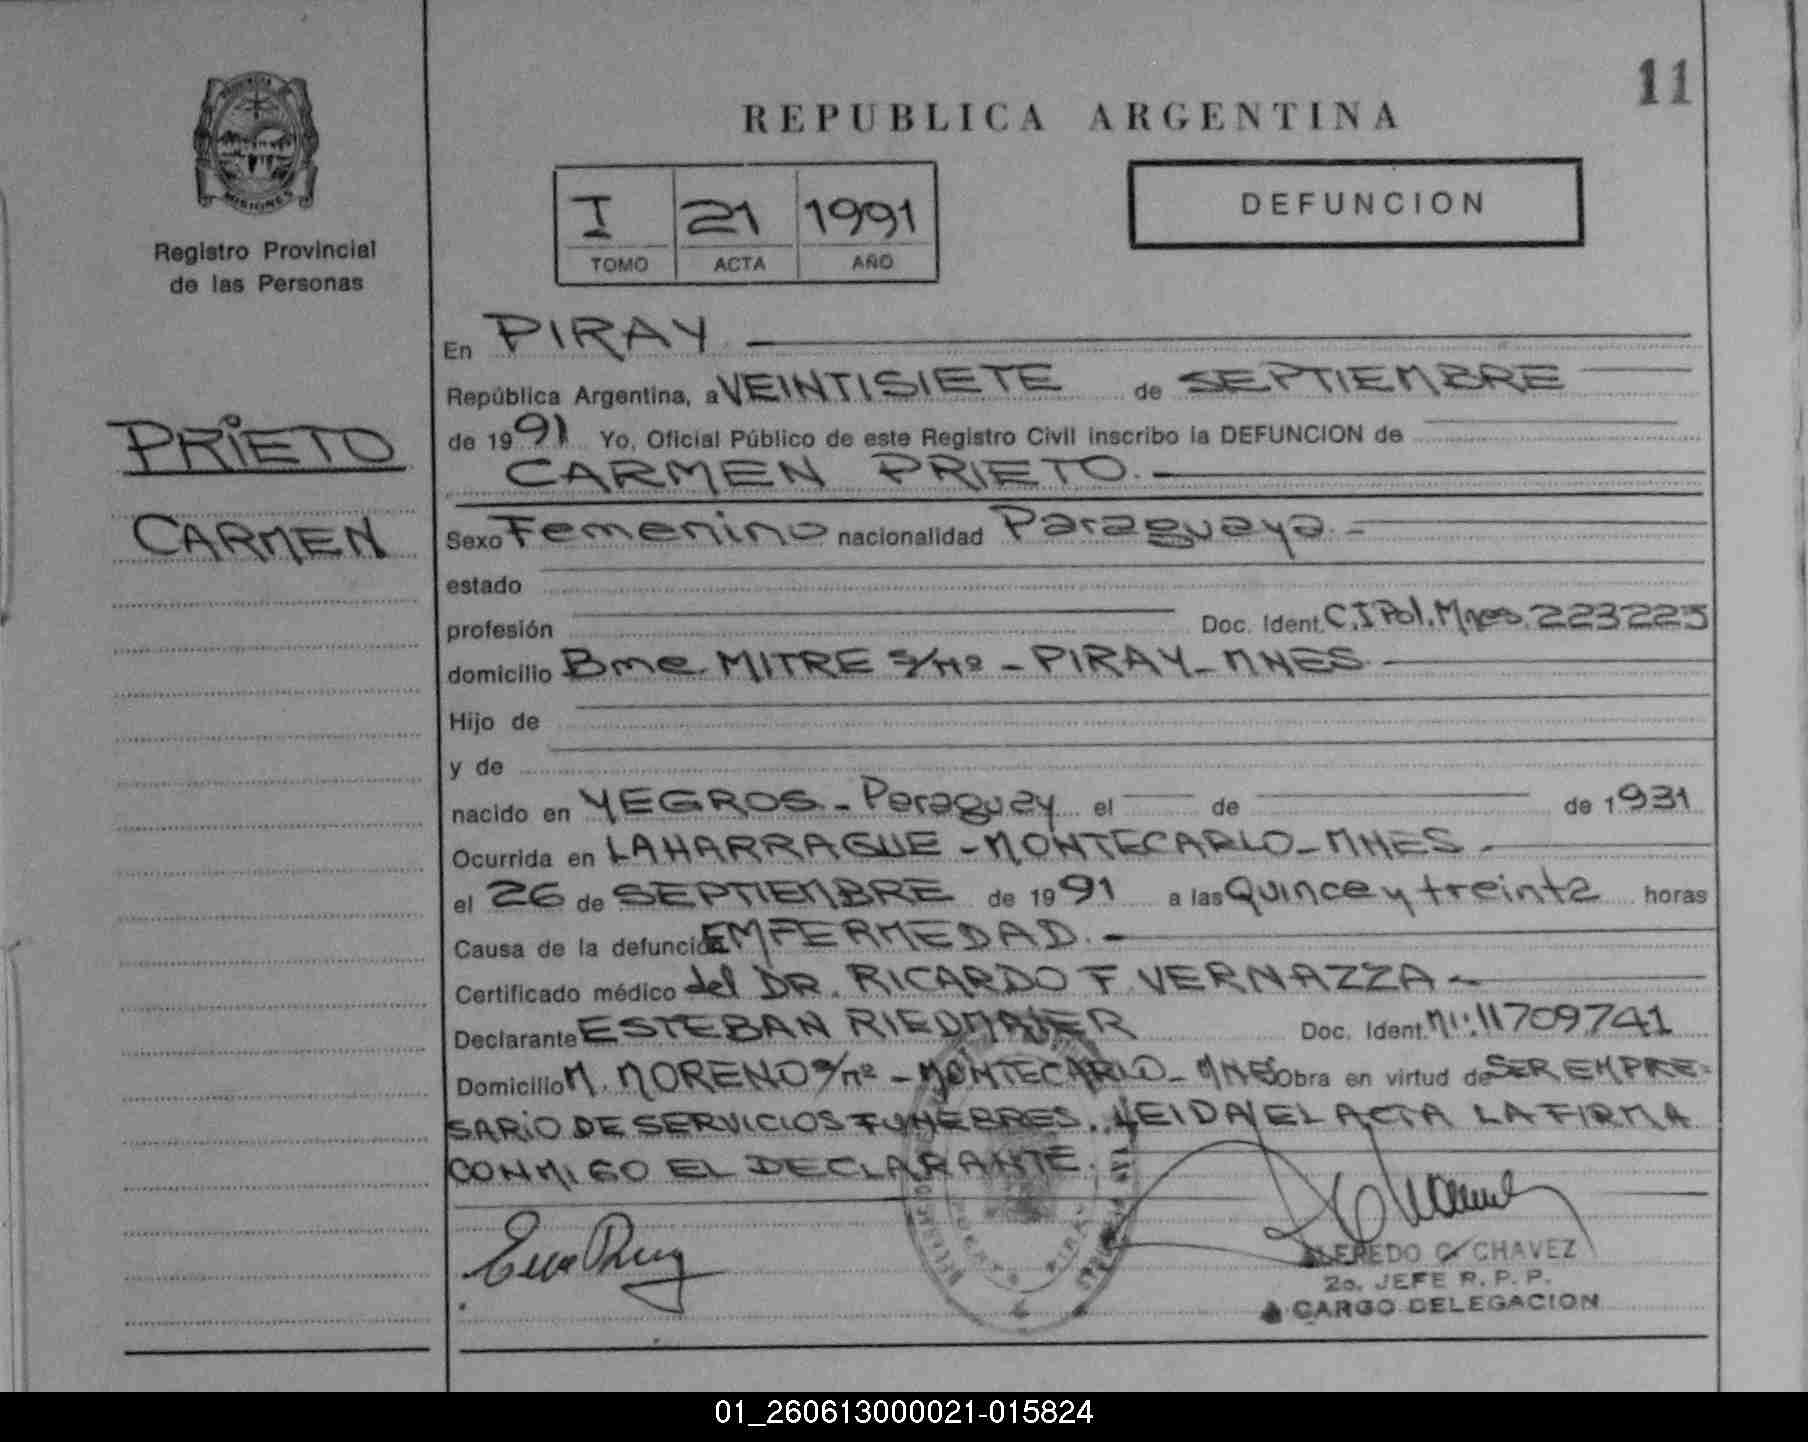 11
REPUBLICA ARGENTINA
MISIONES
Registro Provincial
de las Personas
I 21 1991
TOMO ACTA AÑO
DEFUNCION
PRIETO
CARMEN
En PIRAY
República Argentina, a VEINTISIETE de SEPTIEMBRE
de 1991 Yo, Oficial Público de este Registro Civil inscribo la DEFUNCION de
CARMEN PRIETO.
Sexo Femenino nacionalidad Paraguaya.-
estado
profesión Doc. Ident. C.I Pol. Mnes. 223223
domicilio Bme. MITRE s/nº - PIRAY - MNES.
Hijo de
y de
nacido en YEGROS - Paraguay el de de 1931
Ocurrida en LAHARRAGUE - MONTECARLO - MNES -
el 26 de SEPTIEMBRE de 1991 a las Quince y treinta horas
Causa de la defunción EMFERMEDAD.-
Certificado médico del DR. RICARDO F. VERNAZZA -
Declarante ESTEBAN RIEDMAIER Doc. Ident. 11709741
Domicilio M. MORENO s/nº - MONTECARLO - MNES Obra en virtud de SER EMPRE-
SARIO DE SERVICIOS FUNEBRES. LEIDA EL ACTA LA FIRMA
CONMIGO EL DECLARANTE.
ALFREDO C. CHAVEZ
2o. JEFE R. P. P.
A CARGO DELEGACION
01_260613000021-015824